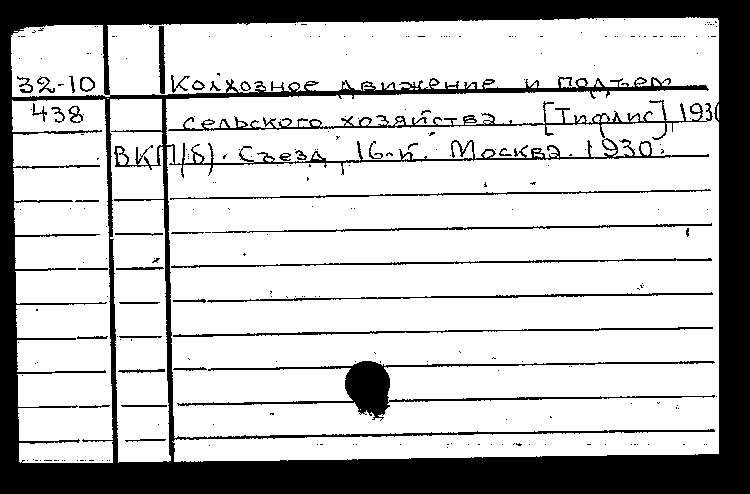 32-10 Колхозное движение и подъем
438 сельского хозяйства. [Тифлис], 1930
ВКП(б). Съезд, 16-й. Москва. 1930.